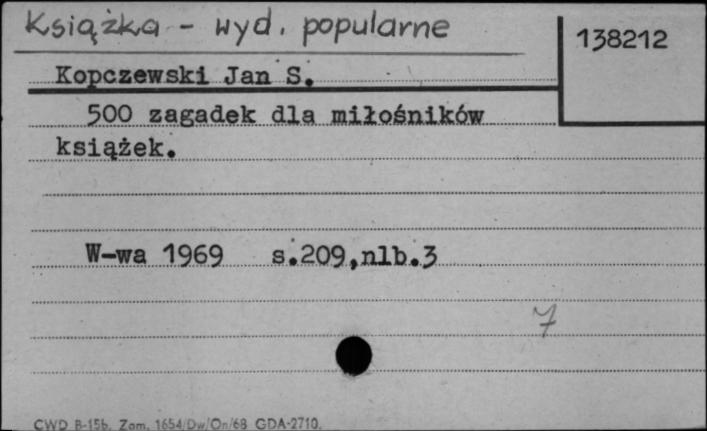 Książka - wyd. popularne
138212
Kopczewski Jan S.
500 zagadek dla miłośników
książek.
W-wa 1969 s.209,nlb.3
7
CWD B-15b. Zam. 1654/Dw/On/68 GDA-2710.